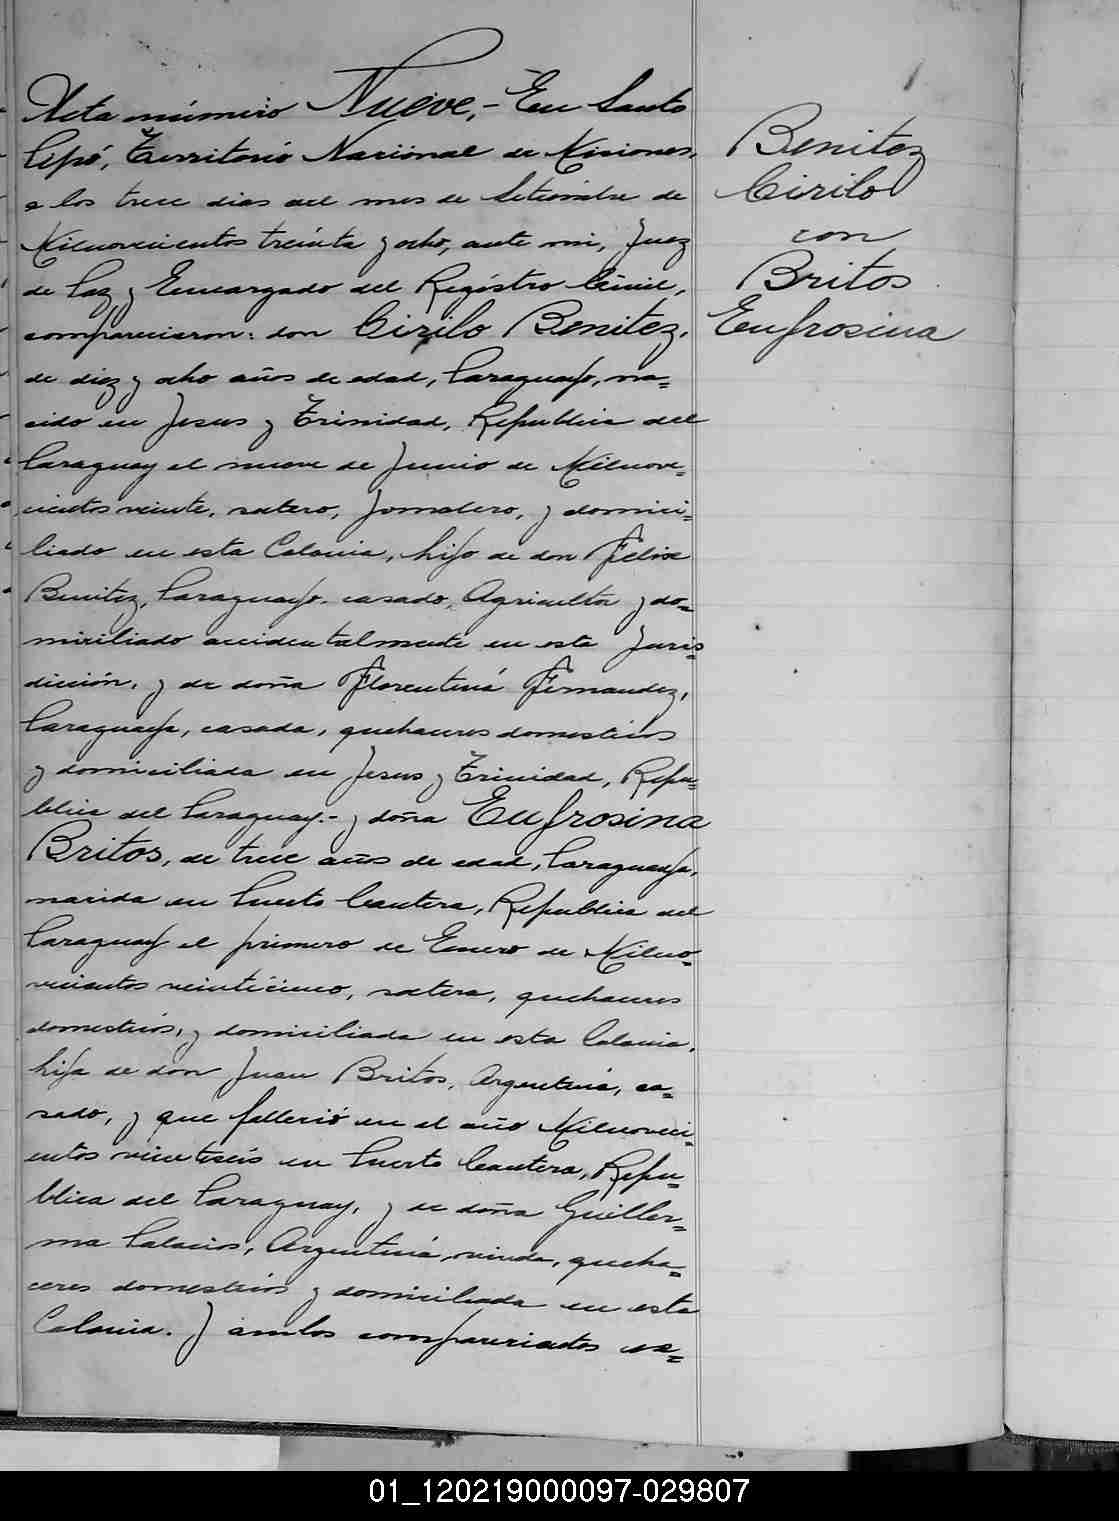 Acta número Nueve.- En Santo
Pipó, Territorio Nacional de Misiones,
a los trece dias del mes de Setiembre de
Milnovecientos treinta y ocho, ante mi, Juez
de Paz y Encargado del Registro Civil,
comparecieron: don Cirilo Benitez,
de diez y ocho años de edad, Paraguayo, na=
cido en Jesus y Trinidad, Republica del
Paraguay el nueve de Junio de Milnove=
cientos veinte, soltero, Jornalero, y domici=
liado en esta Colonia, hijo de don Felix
Benitez, Paraguayo, casado, Agricultor y do=
miciliado accidentalmente en esta Juris=
dicción, y de doña Florentina Fernandez,
Paraguaya, casada, quehaceres domesticos
y domiciliada en Jesus y Trinidad, Repu=
blica del Paraguay.- y doña Eufrosina
Britos, de trece años de edad, Paraguaya,
nacida en Puerto Cantera, Republica del
Paraguay el primero de Enero de Milno=
vecientos veinticinco, soltera, quehaceres
domesticos, y domiciliada en esta Colonia,
hija de don Juan Britos, Argentino, ca=
sado, y que falleció en el año Milnoveci=
entos veinteseis en Puerto Cantera, Repu=
blica del Paraguay, y de doña Guiller=
ma Palacios, Argentina, viuda, queha=
ceres domesticos y domiciliada en esta
Colonia. Y ambos comparecientos
Benitez
Cirilo
con
Britos
Eufrosina
01_120219000097-029807